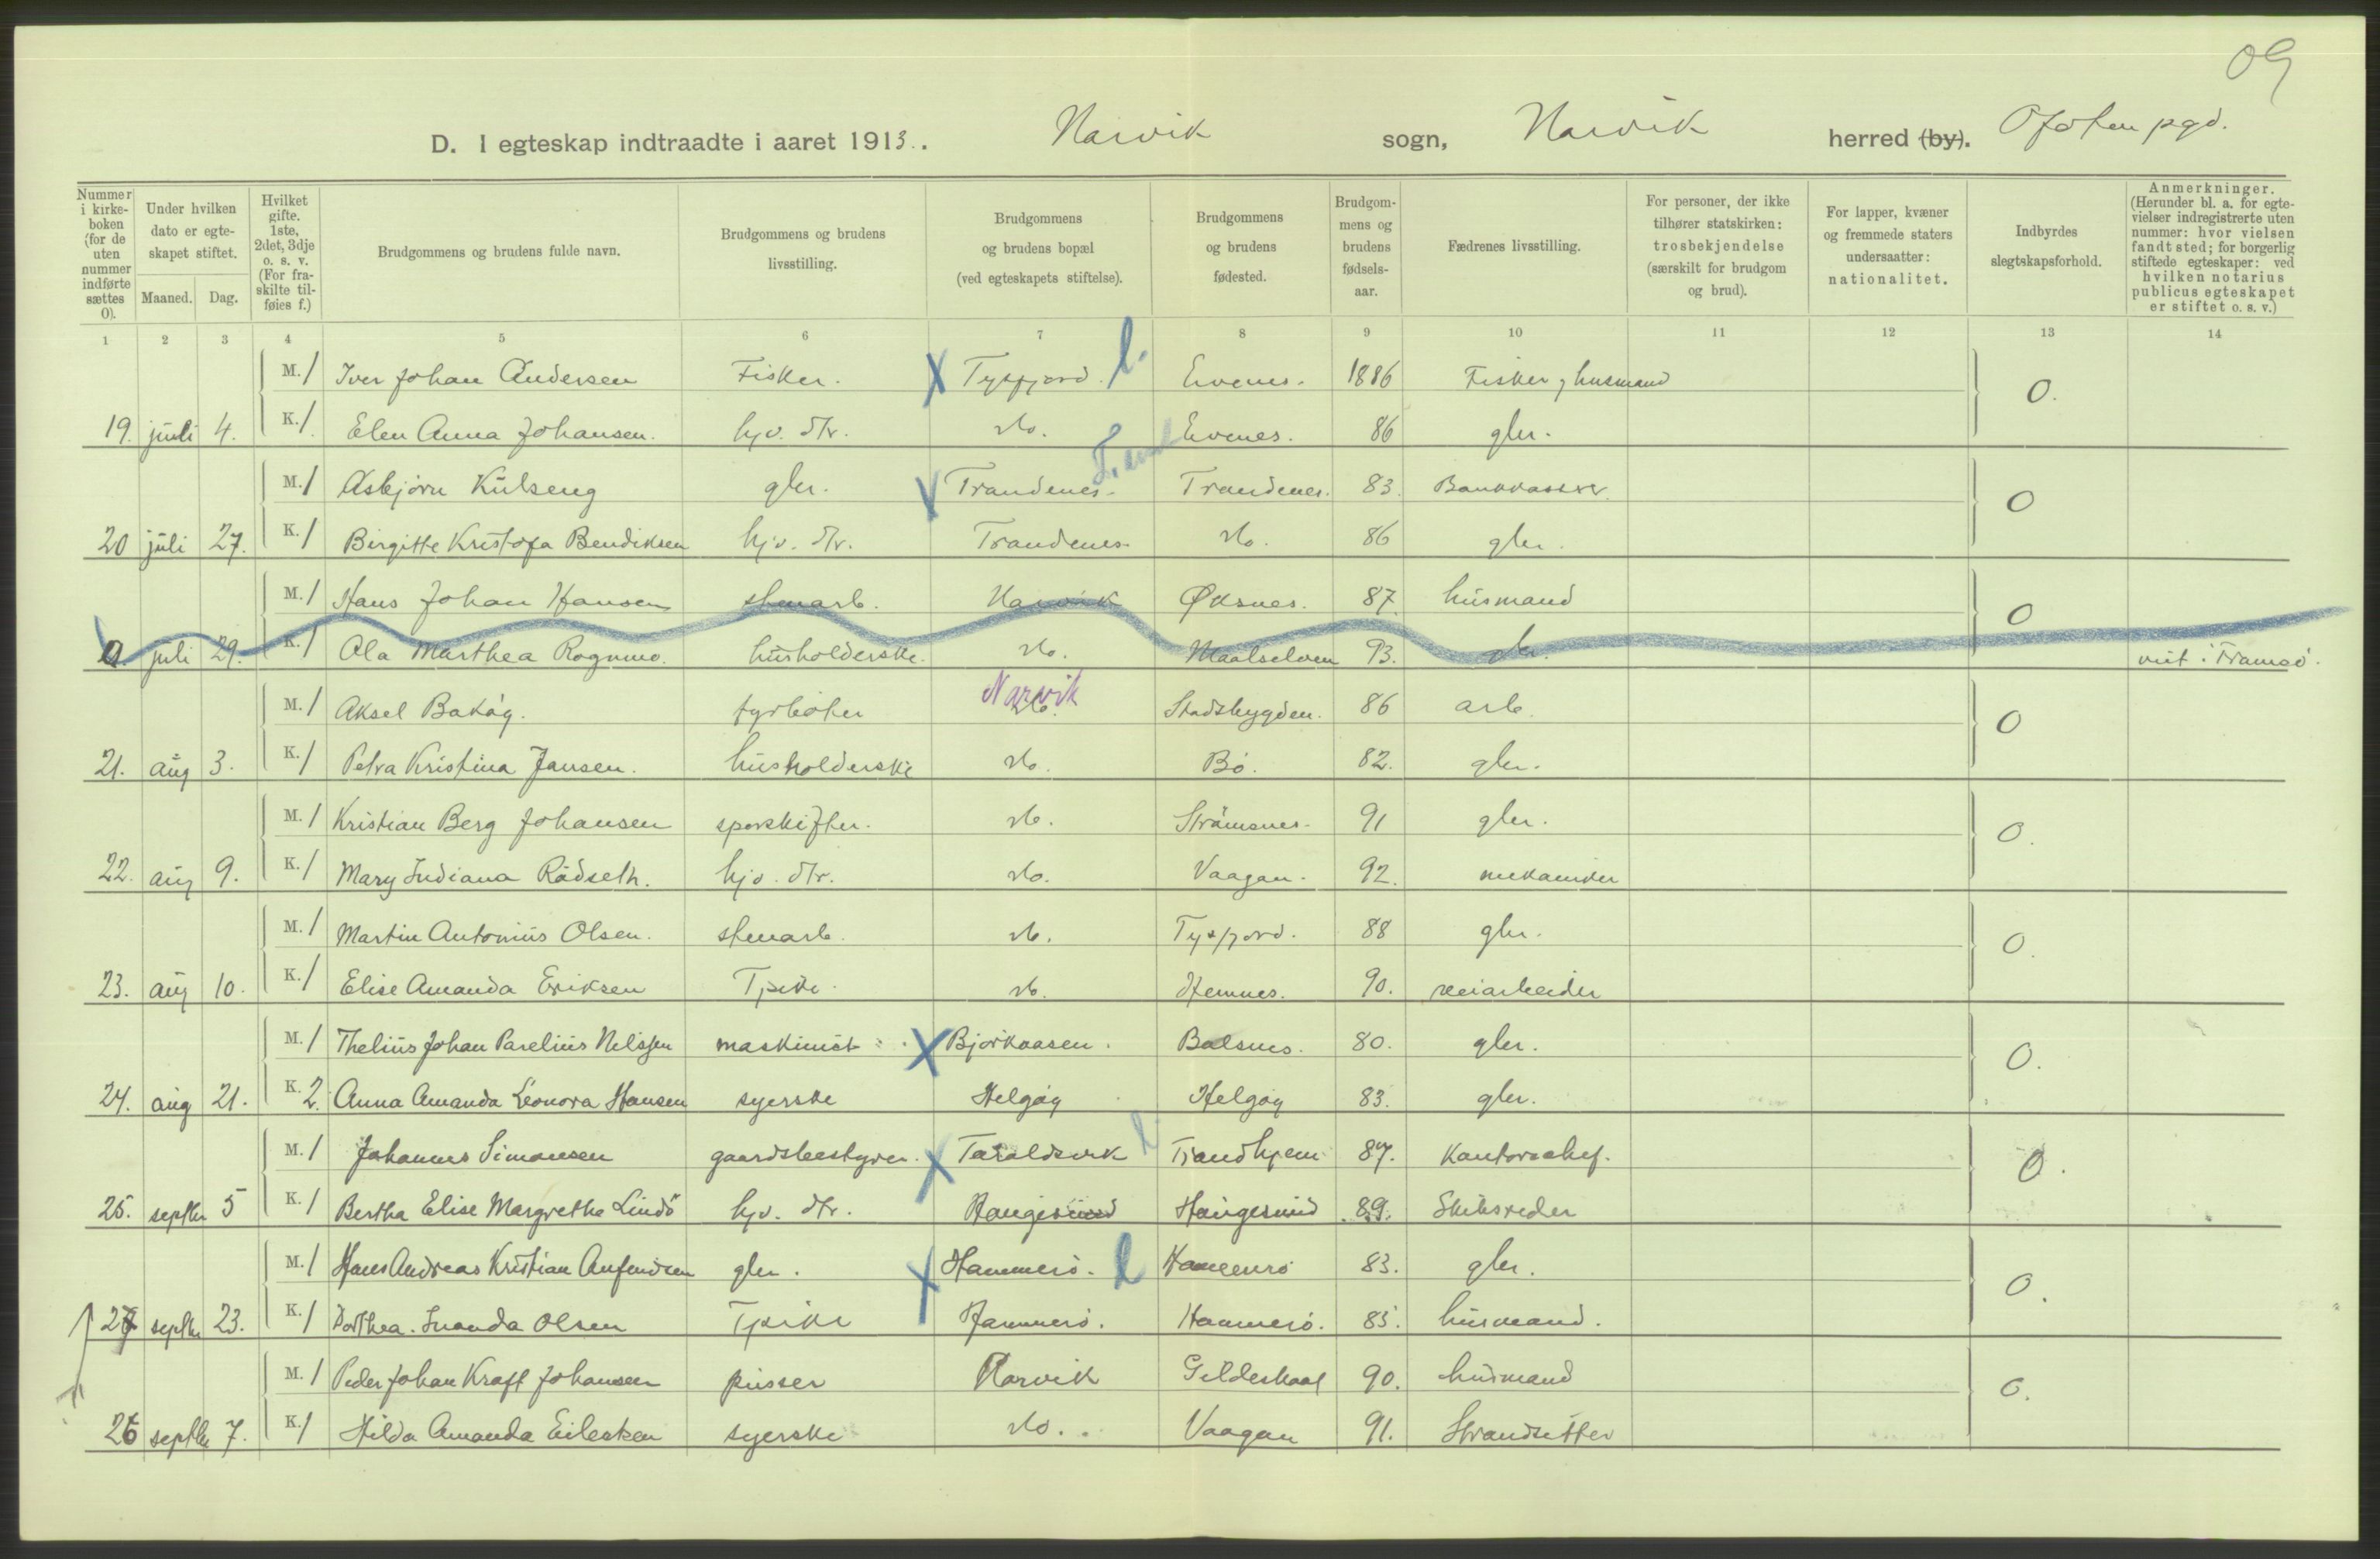 09
D. I egteskap indtraadte i aaret 1913. Narvik sogn, Narvik herred (by). Ofoten pgd.
Nummer i kirkeboken (for de uten nummer indførte sættes 0).
Under hvilken dato er egteskapet stiftet.
Maaned. Dag.
Hvilket gifte. 1ste, 2det, 3dje o. s. v. (For fraskilte tilføies f.)
Brudgommens og brudens fulde navn.
Brudgommens og brudens livsstilling.
Brudgommens og brudens bopæl (ved egteskapets stiftelse).
Brudgommens og brudens fødested.
Brudgommens og brudens fødselsaar.
Fædrenes livsstilling.
For personer, der ikke tilhører statskirken: trosbekjendelse (særskilt for brudgom og brud).
For lapper, kvæner og fremmede staters undersaatter: nationalitet.
Indbyrdes slegtskapsforhold.
Anmerkninger. (Herunder bl. a. for egtevielser indregistrerte uten nummer: hvor vielsen fandt sted; for borgerlig stiftede egteskaper: ved hvilken notarius publicus egteskapet er stiftet o. s. v.)
1 2 3 4 5 6 7 8 9 10 11 12 13 14
M. 1 Iver Johan Andersen Fisker. X Tysfjord. l. Evenes. 1886 Fisker, husmand 0.
19. juli 4. K. 1. Elen Anna Johansen. hjv. dtr. do. Evenes. 86 gbr.
M. 1 Asbjørn Kulseng gbr. Trondenes. Trondenes. 83. Bankkasser. 0
20 juli 27. K. 1 Birgitte Kristofa Bendiksen hjv. dtr. Trondenes. do. 86 gbr.
M. 1 Hans Johan Hansen stenarb. Narvik Øksnes. 87. husmand 0
0. juli 29. K. 1 Ola Marthea Rognmo. husholderske. do. Maalselven 93. do. viet i Tromsö.
M. 1 Aksel Bakøy. fyrbøter Narvik do. Stadsbygden. 86 arb. 0
21. aug 3. K. 1 Petra Kristina Jansen. husholderske do. Bø. 82. gbr.
M. 1 Kristian Berg Johansen sporskifter. do. Strømsnes. 91 gbr. 0.
22. aug 9. K. 1 Mary Indiana Rødseth. hjv. dtr. do. Vaagan. 92. mekaniker
M. 1 Martin Antonius Olsen. stenarb. do. Tysfjord. 88 gbr. 0.
23. aug 10. K. 1 Elise Amanda Eriksen Tjike. do. Hemnes. 90. veiarbeider
M. 1 Thelius Johan Parelius Nelssen maskinist X Bjørkaasen. Balsnes. 80. gbr. 0.
24. aug 21. K. 2. Anna Amanda Leonora Hansen syerske Helgøy Helgøy 83. gbr.
M. 1 Johannes Simonsen gaardsbestyrer. X Taraldsvik l Trondhjem 87. Kontorchef. 0.
25. septbr 5 K. 1 Bertha Elise Margrethe Lindø hjv. dtr. Haugesund Haugesund 89. Skibsreder
M. 1 Hans Andreas Kristian Anfindsen gbr. X Hammerø. l Hammerø 83. gbr. 0.
27 septbr 23. K. 1 Dorthea. Inanda Olsen Tjike Hammerø. Hammerø. 85. husmand.
M. 1 Peder Johan Kraft Johansen pusser Narvik Gildeskaal 90. husmand 0.
26 septbr 7. K. 1 Hilda Amanda Eilertsen syerske do. Vaagan 91. Strandsitter